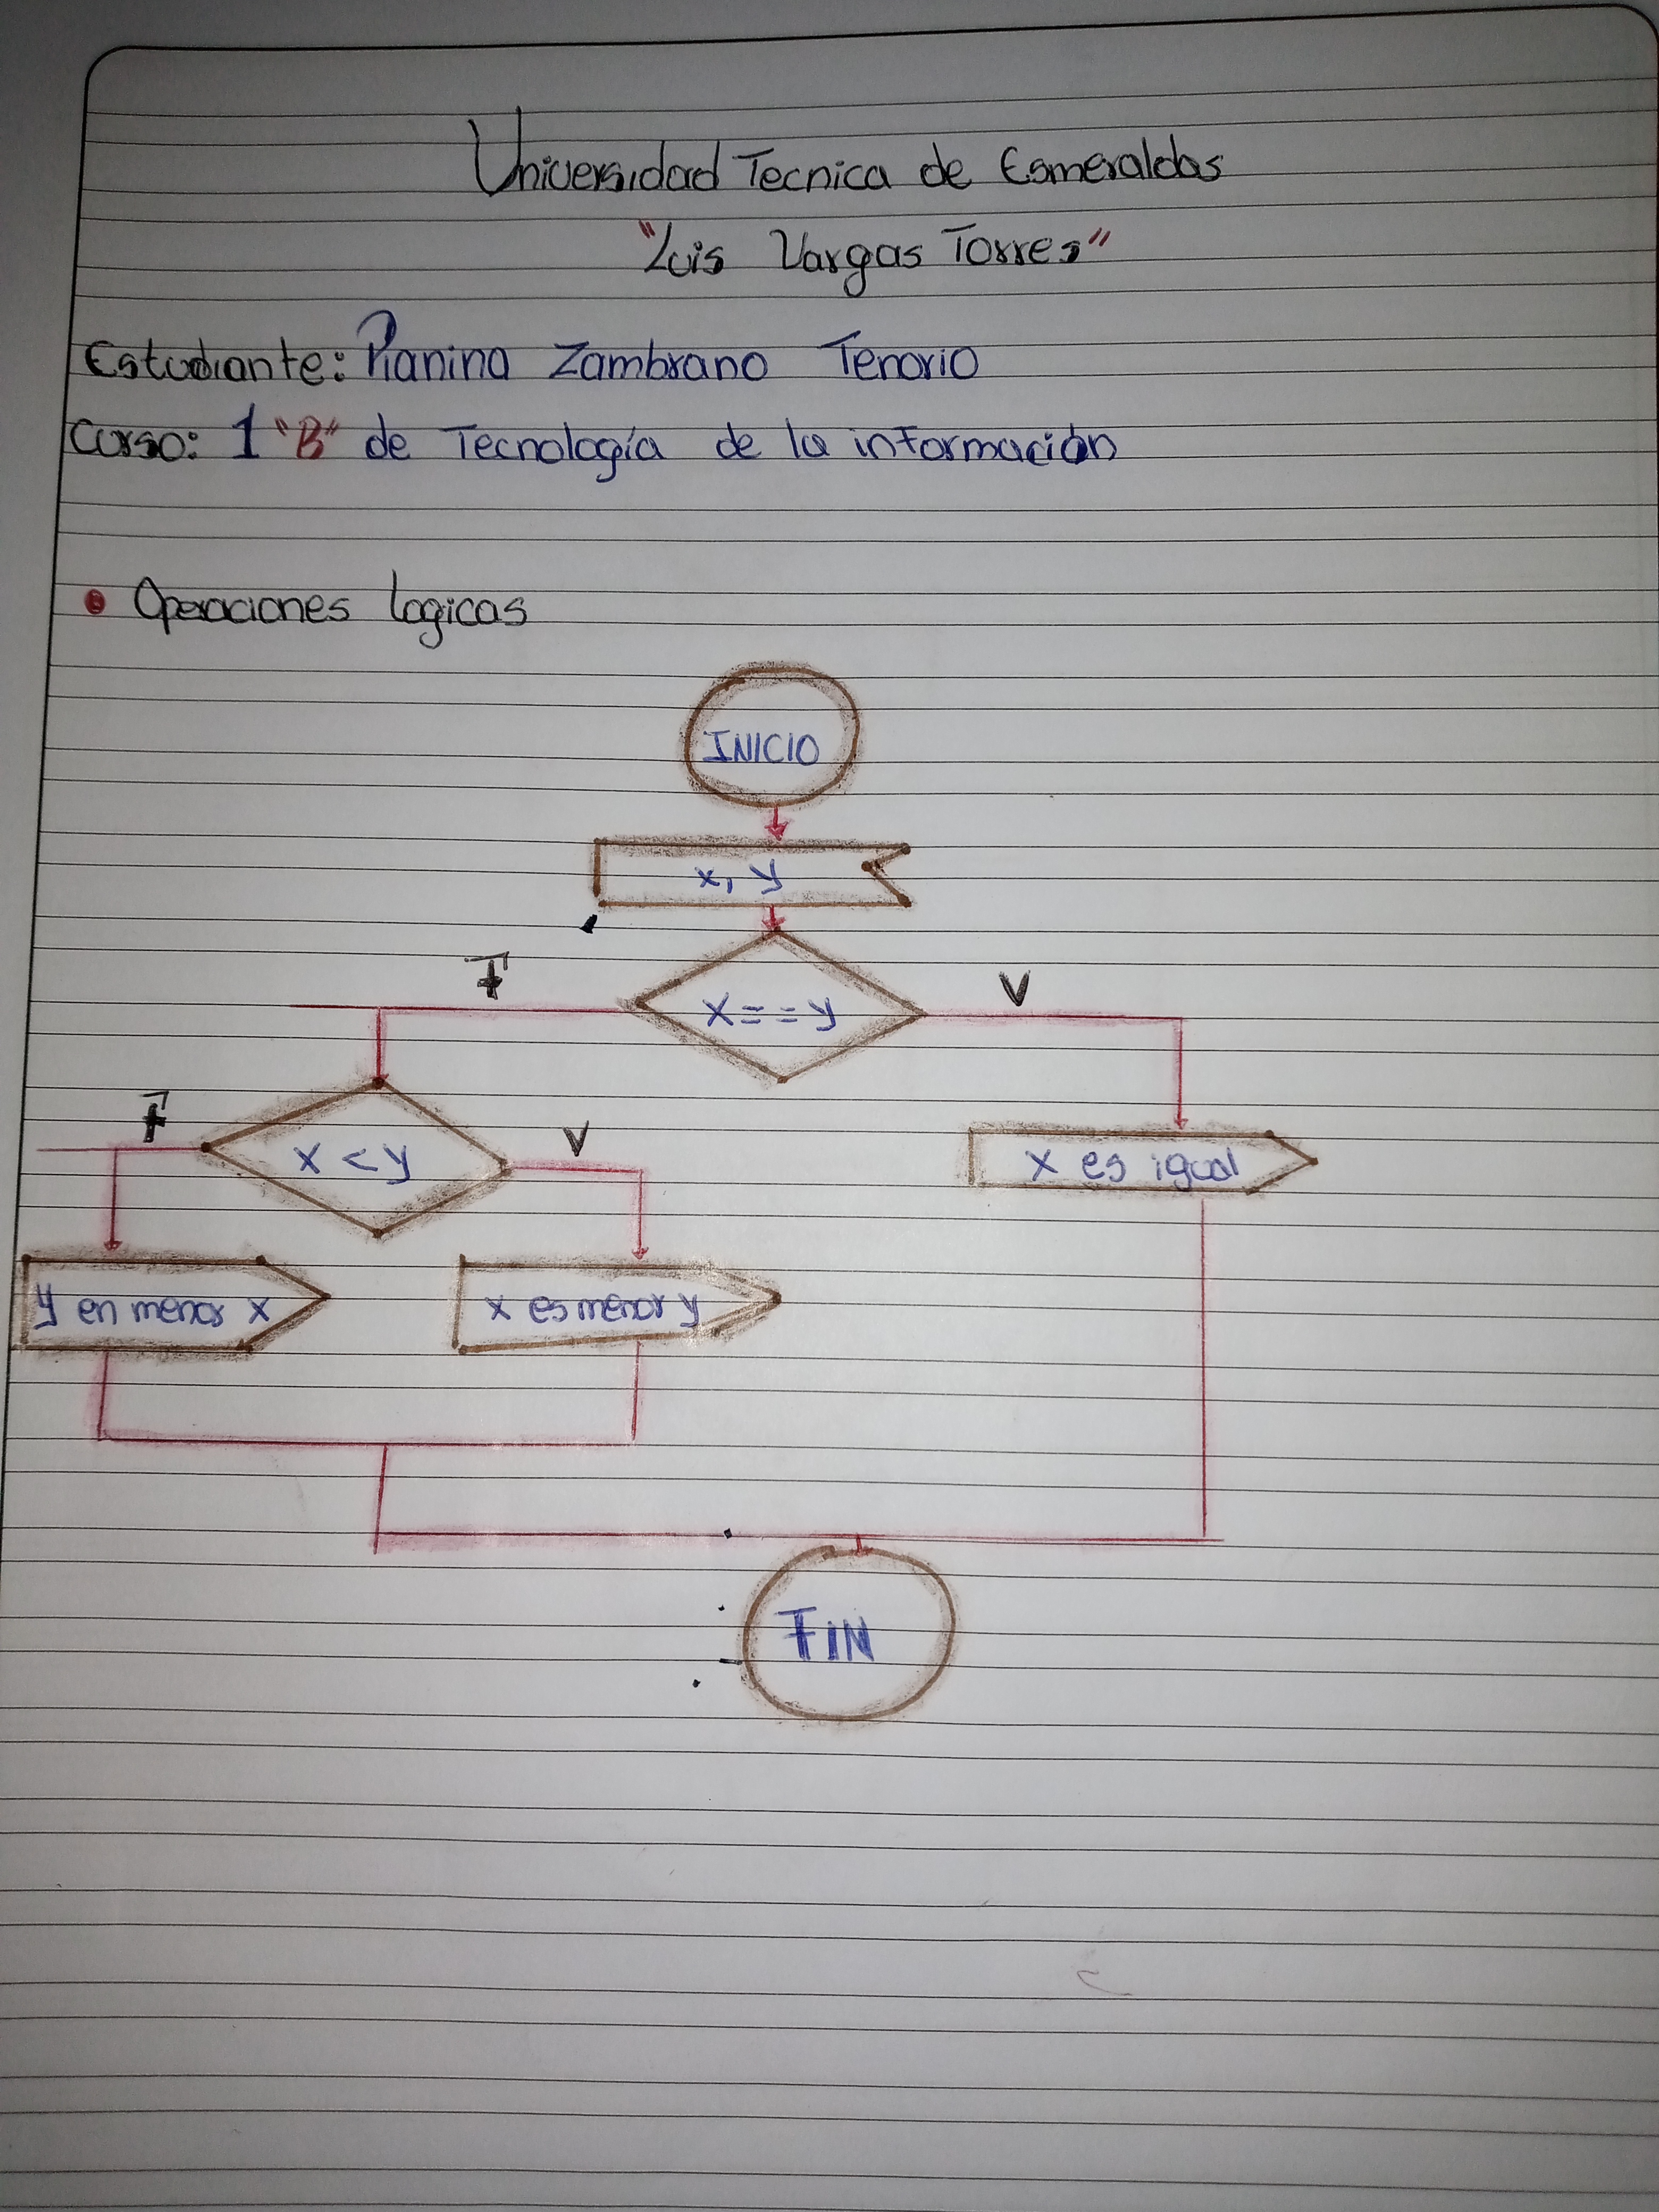 Universidad Tecnica de Esmeraldas
"Luis Vargas Torres"
Estudiante: Pianina Zambrano Tenorio
Curso: 1 "B" de Tecnología de la información
• Operaciones logicas
INICIO
x, y
F
x==y
V
F
x < y
V
x es igual
y en menor x
x es menor y
FIN